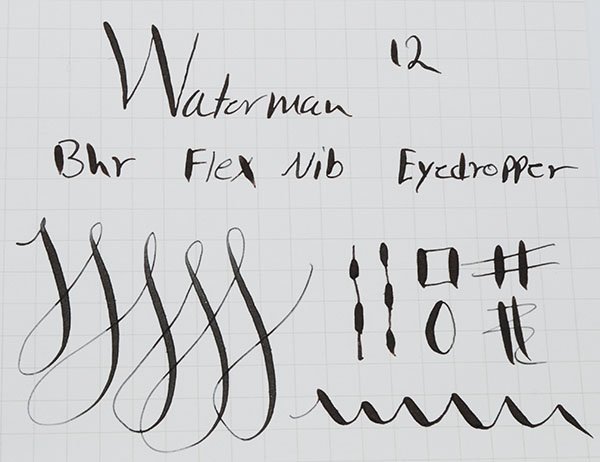 Waterman 12
Bhr Flex Nib Eyedropper